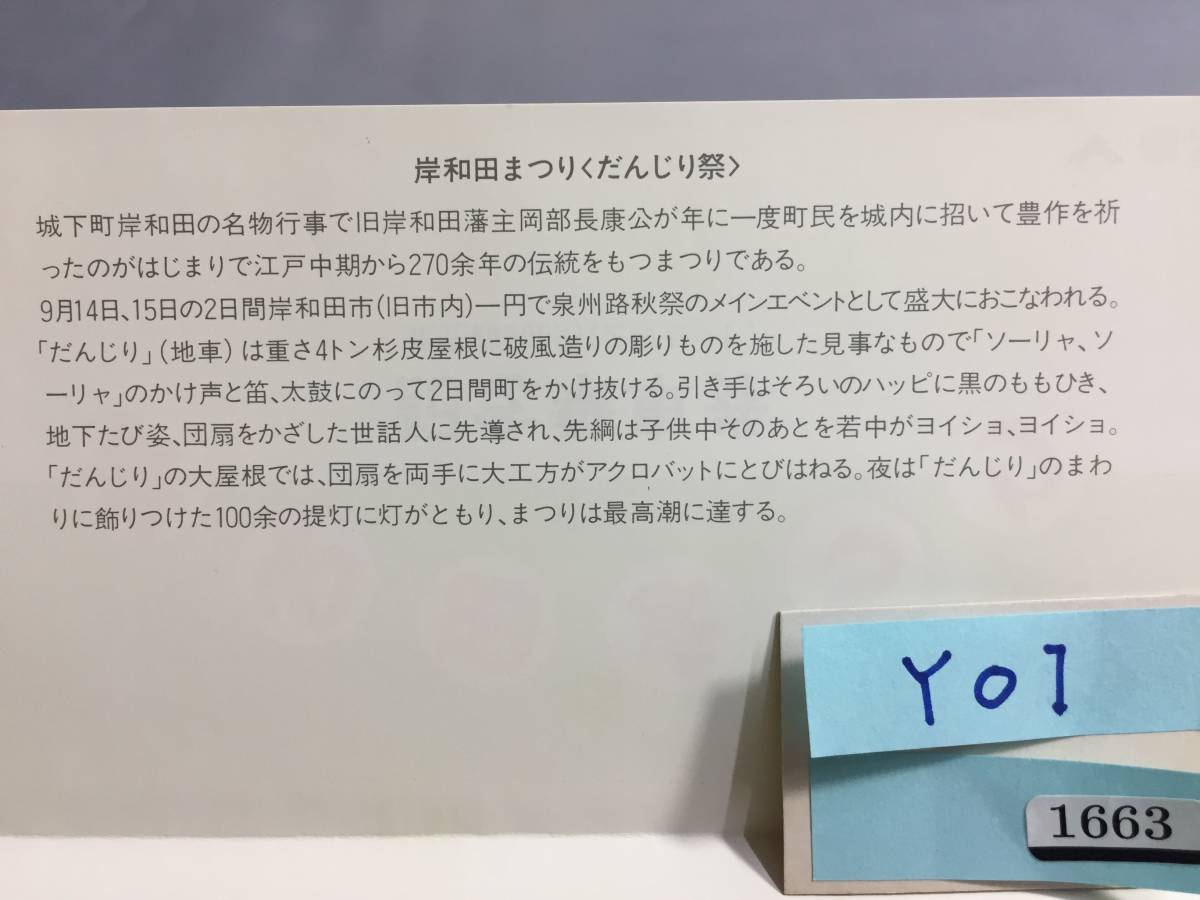 岸和田まつり〈だんじり祭〉
城下町岸和田の名物行事で旧岸和田藩主岡部長康公が年に一度町民を城内に招いて豊作を祈
ったのがはじまりで江戸中期から270余年の伝統をもつまつりである。
9月14日、15日の2日間岸和田市(旧市内)一円で泉州路秋祭のメインエベントとして盛大におこなわれる。
「だんじり」(地車)は重さ4トン杉皮屋根に破風造りの彫りものを施した見事なもので「ソーリャ、ソ
ーリャ」のかけ声と笛、太鼓にのって2日間町をかけ抜ける。引き手はそろいのハッピに黒のももひき、
地下たび姿、団扇をかざした世話人に先導され、先綱は子供中そのあとを若中がヨイショ、ヨイショ。
「だんじり」の大屋根では、団扇を両手に大工方がアクロバットにとびはねる。夜は「だんじり」のまわ
りに飾りつけた100余の提灯に灯がともり、まつりは最高潮に達する。
Y01
1663